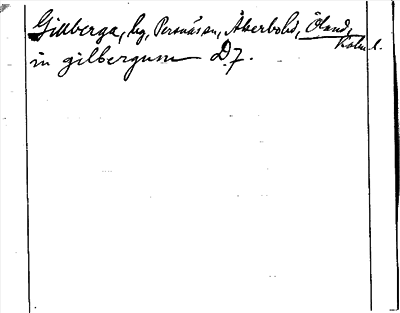 Gillberga, by, Persnäsen, Åkerbohd, Öland,
Kalm. l.
in gilbergum D.7.